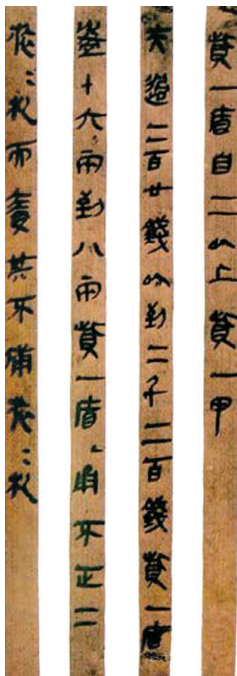 貲一盾自二以上貲一甲
夫過二百廿錢以到二千二百錢貲一盾
盈十六兩到八兩貲一盾甬不正二
旅=札而責其不備旅=札